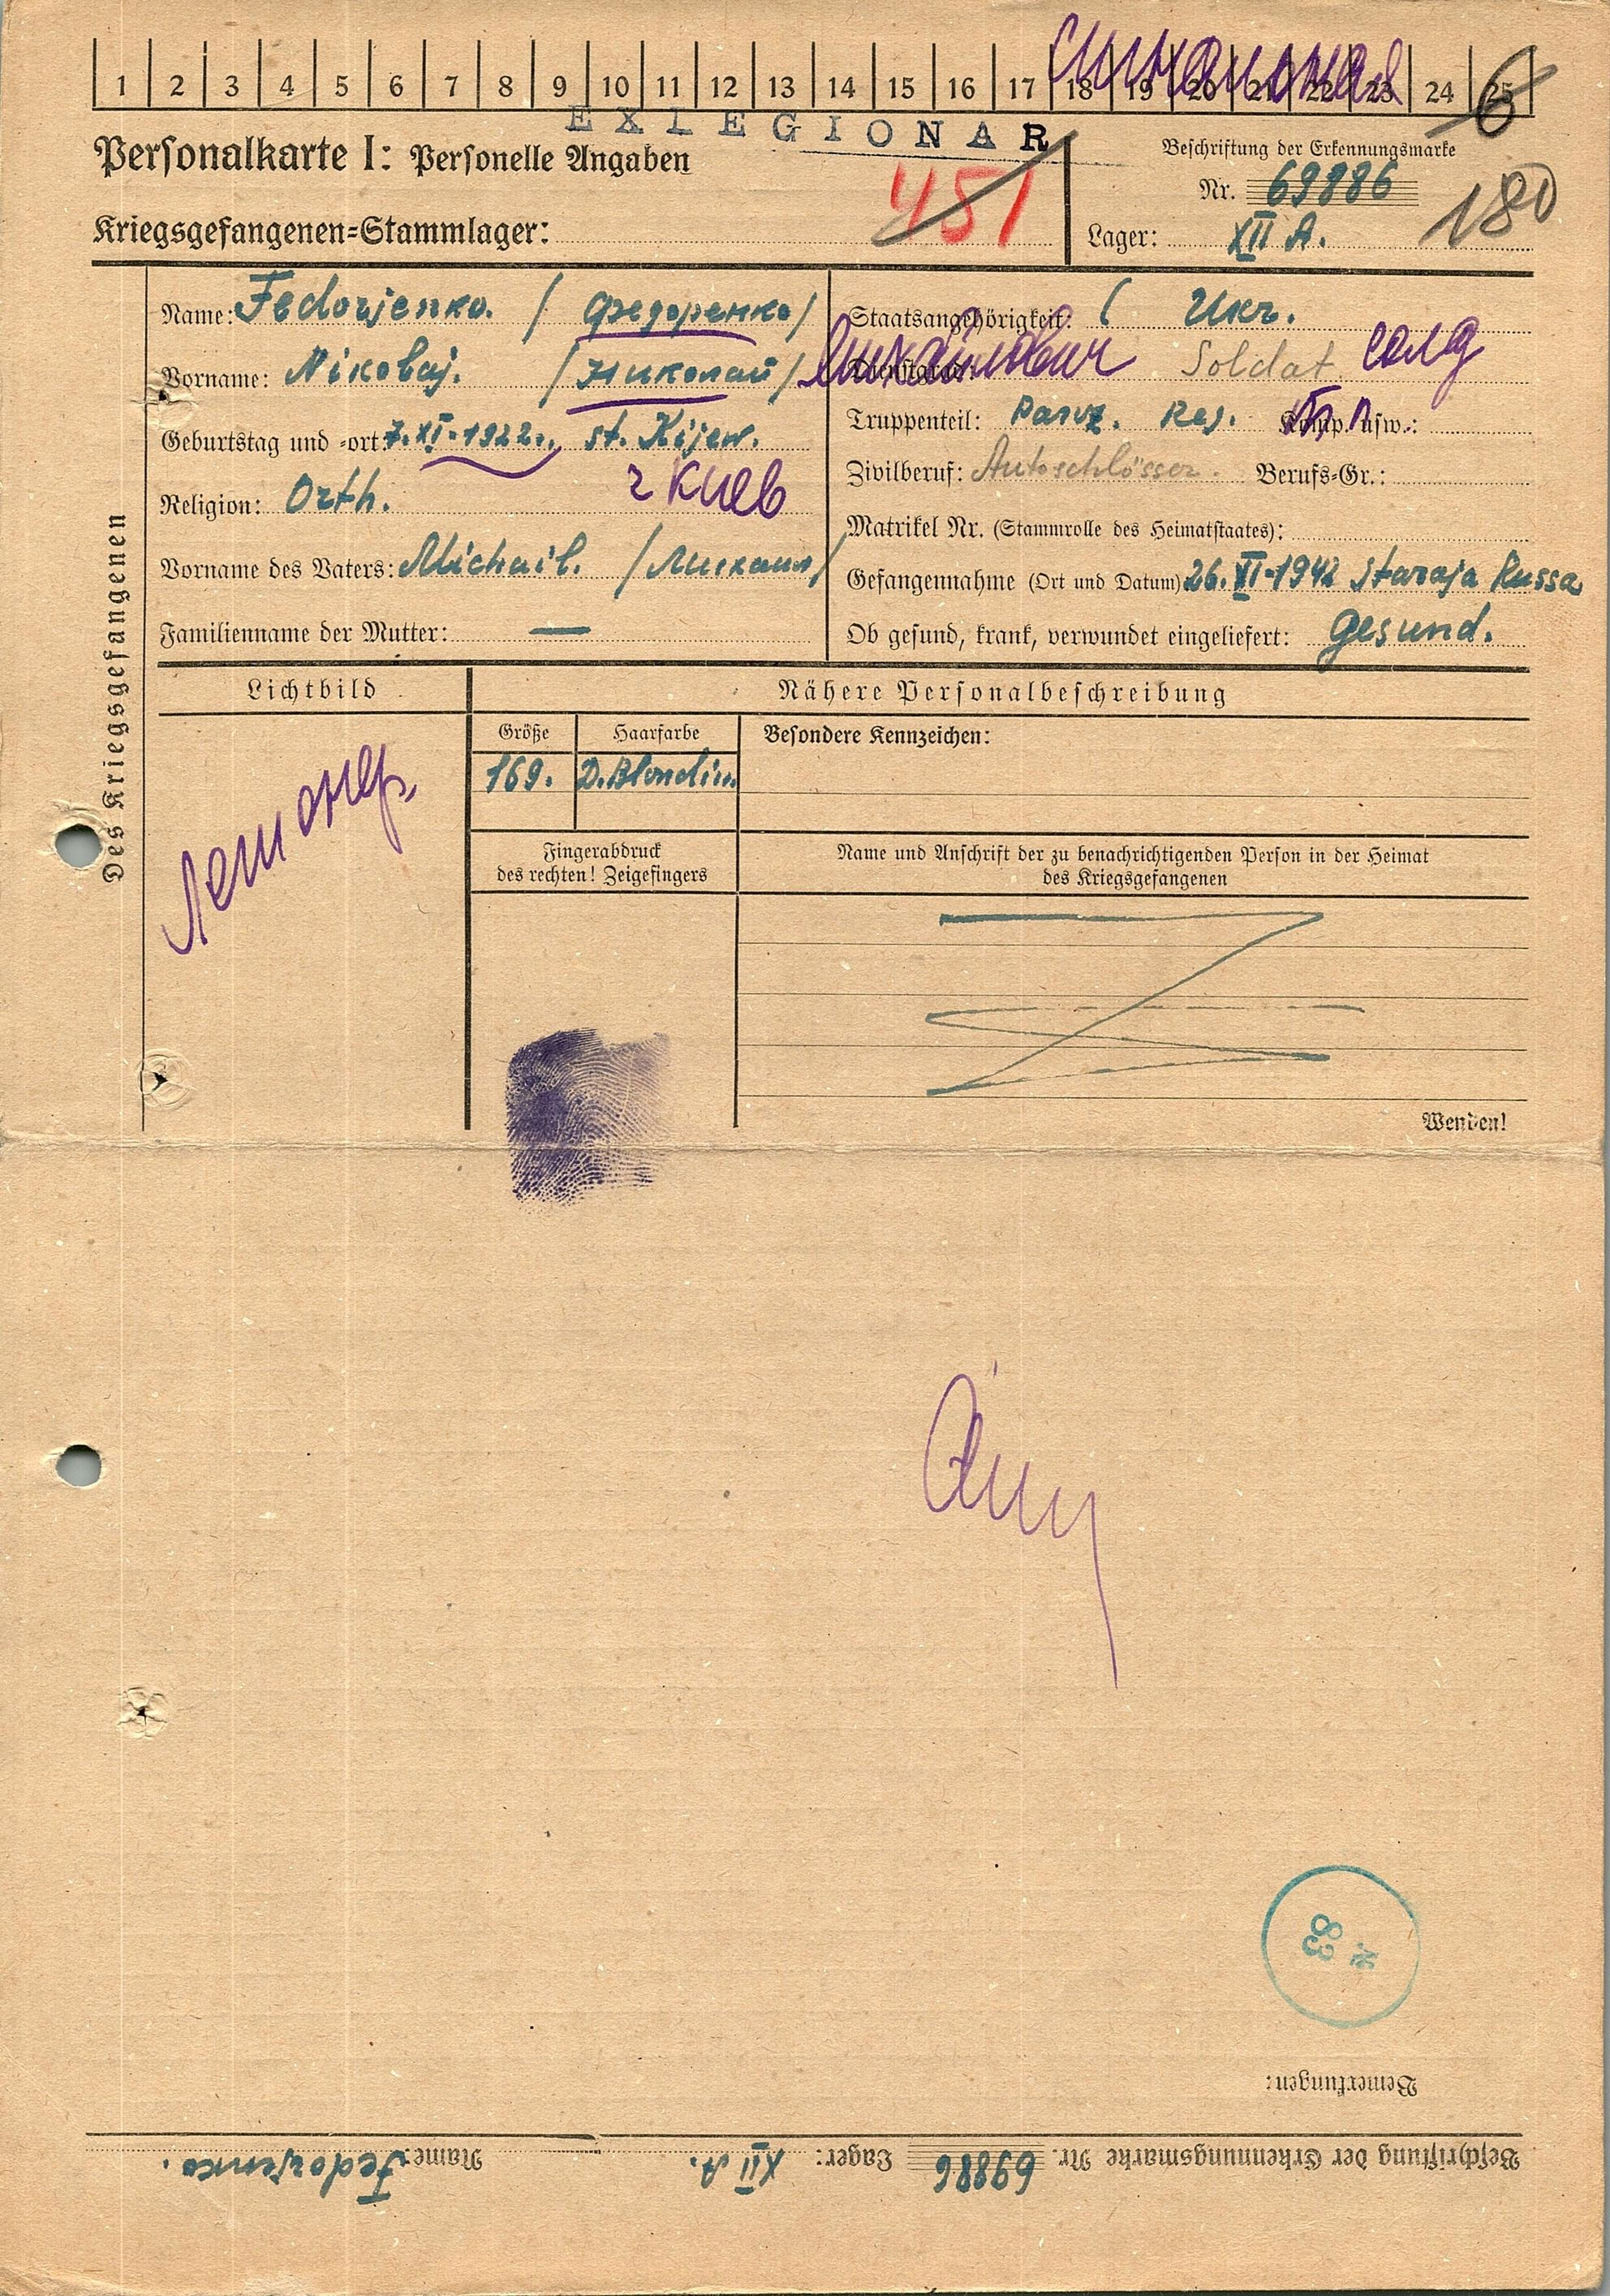 1 2 3 4 5 6 7 8 9 10 11 12 13 14 15 16 17 18 19 20 21 22 23 24 25
6
EXLEGIONAR
Personalkarte I: Personelle Angaben
451
Beschriftung der Erkennungsmarke
Nr. 69886
180
Kriegsgefangenen=Stammlager:
Lager: XII A.
Des Kriegsgefangenen
Name: Fedorjenko. / Федоренко /
Vorname: Nikolaj. / Николай / Михайлович
Geburtstag und =ort: 7. XI. 1922., st. Kijew.
г Киев
Religion: Orth.
Vorname des Vaters: Michail. / Михаил /
Familienname der Mutter: —
Staatsangehörigkeit: Ukr.
Dienstgrad: Soldat солд
Truppenteil: Panz. Reg. Komp. usw.:
Zivilberuf: Autoschlösser. Berufs=Gr.:
Matrikel Nr. (Stammrolle des Heimatstaates):
Gefangennahme (Ort und Datum) 26. VI-1942 Staraja Russa
Ob gesund, krank, verwundet eingeliefert: gesund.
Lichtbild
Nähere Personalbeschreibung
Größe
Haarfarbe
Besondere Kennzeichen:
169.
D. Blondin.
Fingerabdruck
des rechten! Zeigefingers
Name und Anschrift der zu benachrichtigenden Person in der Heimat
des Kriegsgefangenen
Wenden!
83
Bemerkungen:
Beschriftung der Erkennungsmarke Nr. 69886 Lager: XII A. Name: Fedorjenko.